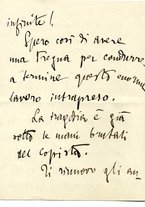 infinite!
Spero così di avere
una tregua per condurre
a termine questo enorme
lavoro intrapreso.
La tragedia è già
sotto le mani brutali
del copista.
Ti rinnovo gli au-